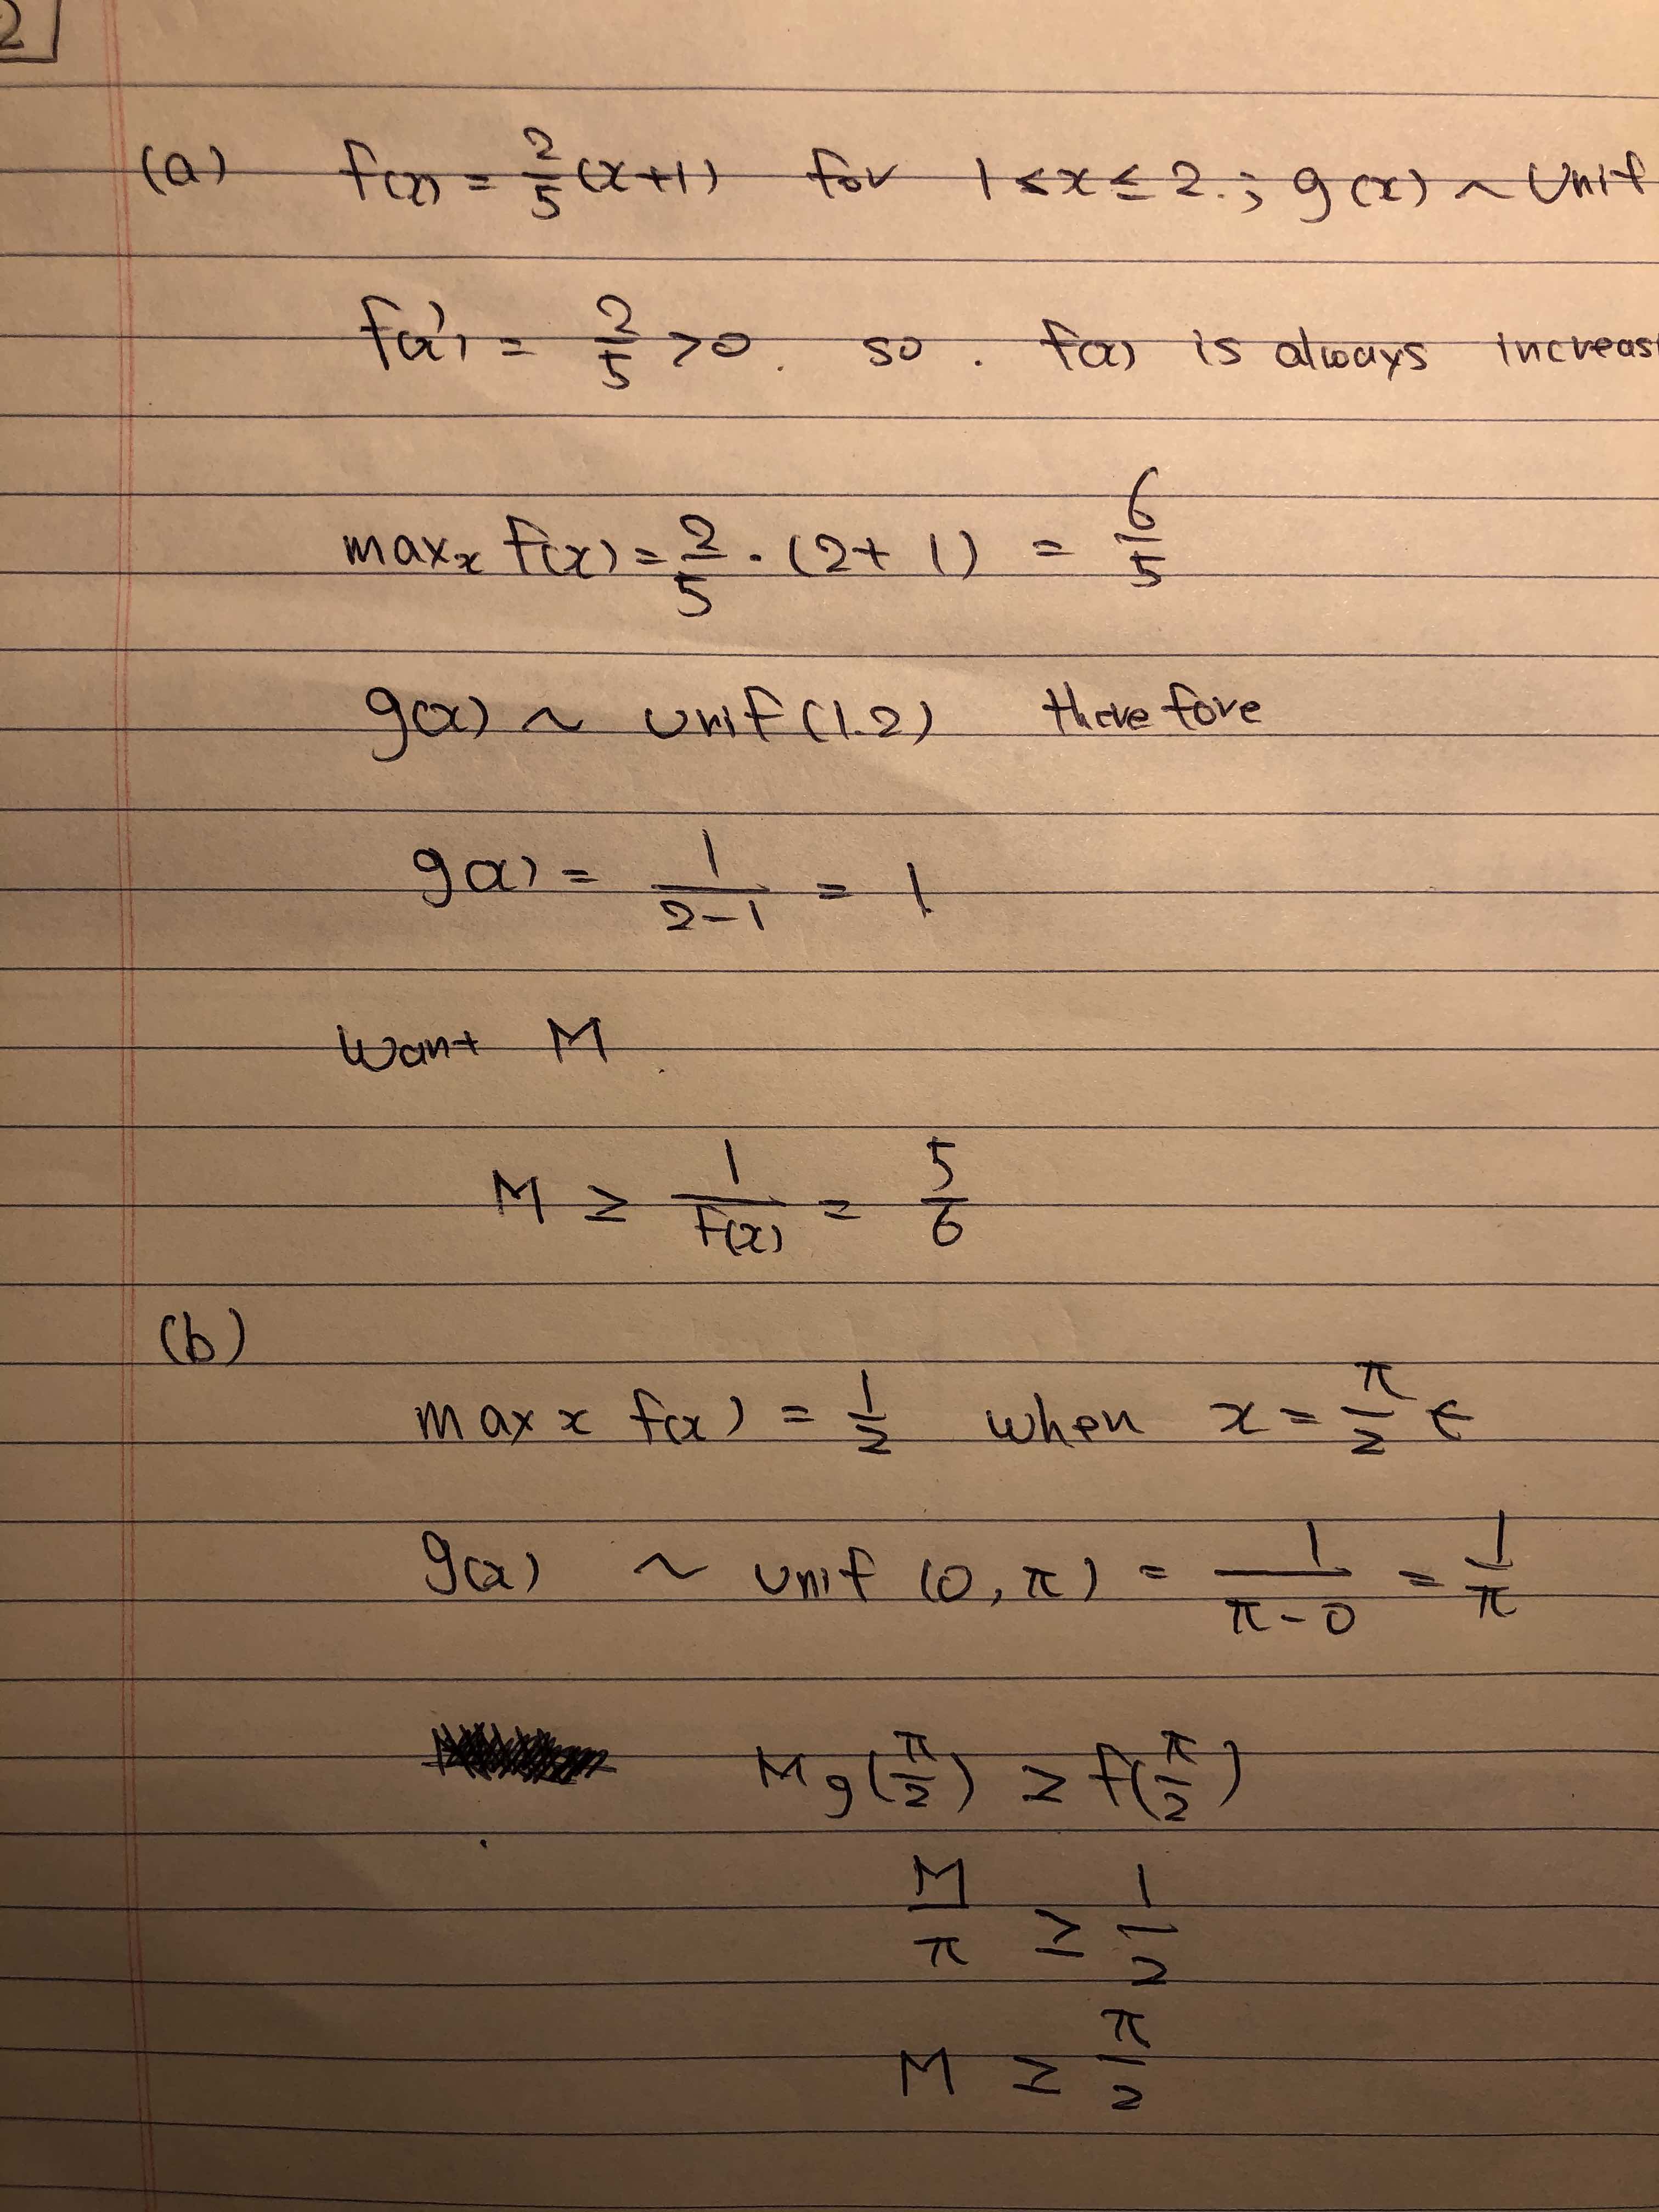 2
(a) f(x) = 2/5 (x+1) for 1 ≤ x ≤ 2. ; g(x) ~ Unif
f(x)' = 2/5 > 0. so. f(x) is always increas
max x f(x) = 2/5 · (2+1) = 6/5
g(x) ~ Unif (1.2) therefore
g(x) = 1/(2-1) = 1
Want M.
M ≥ 1/f(x) = 5/6
(b)
max x f(x) = 1/2 when x = π/2 ←
g(x) ~ Unif (0, π) = 1/(π-0) = 1/π
M g(π/2) ≥ f(π/2)
M/π ≥ 1/2
M ≥ π/2